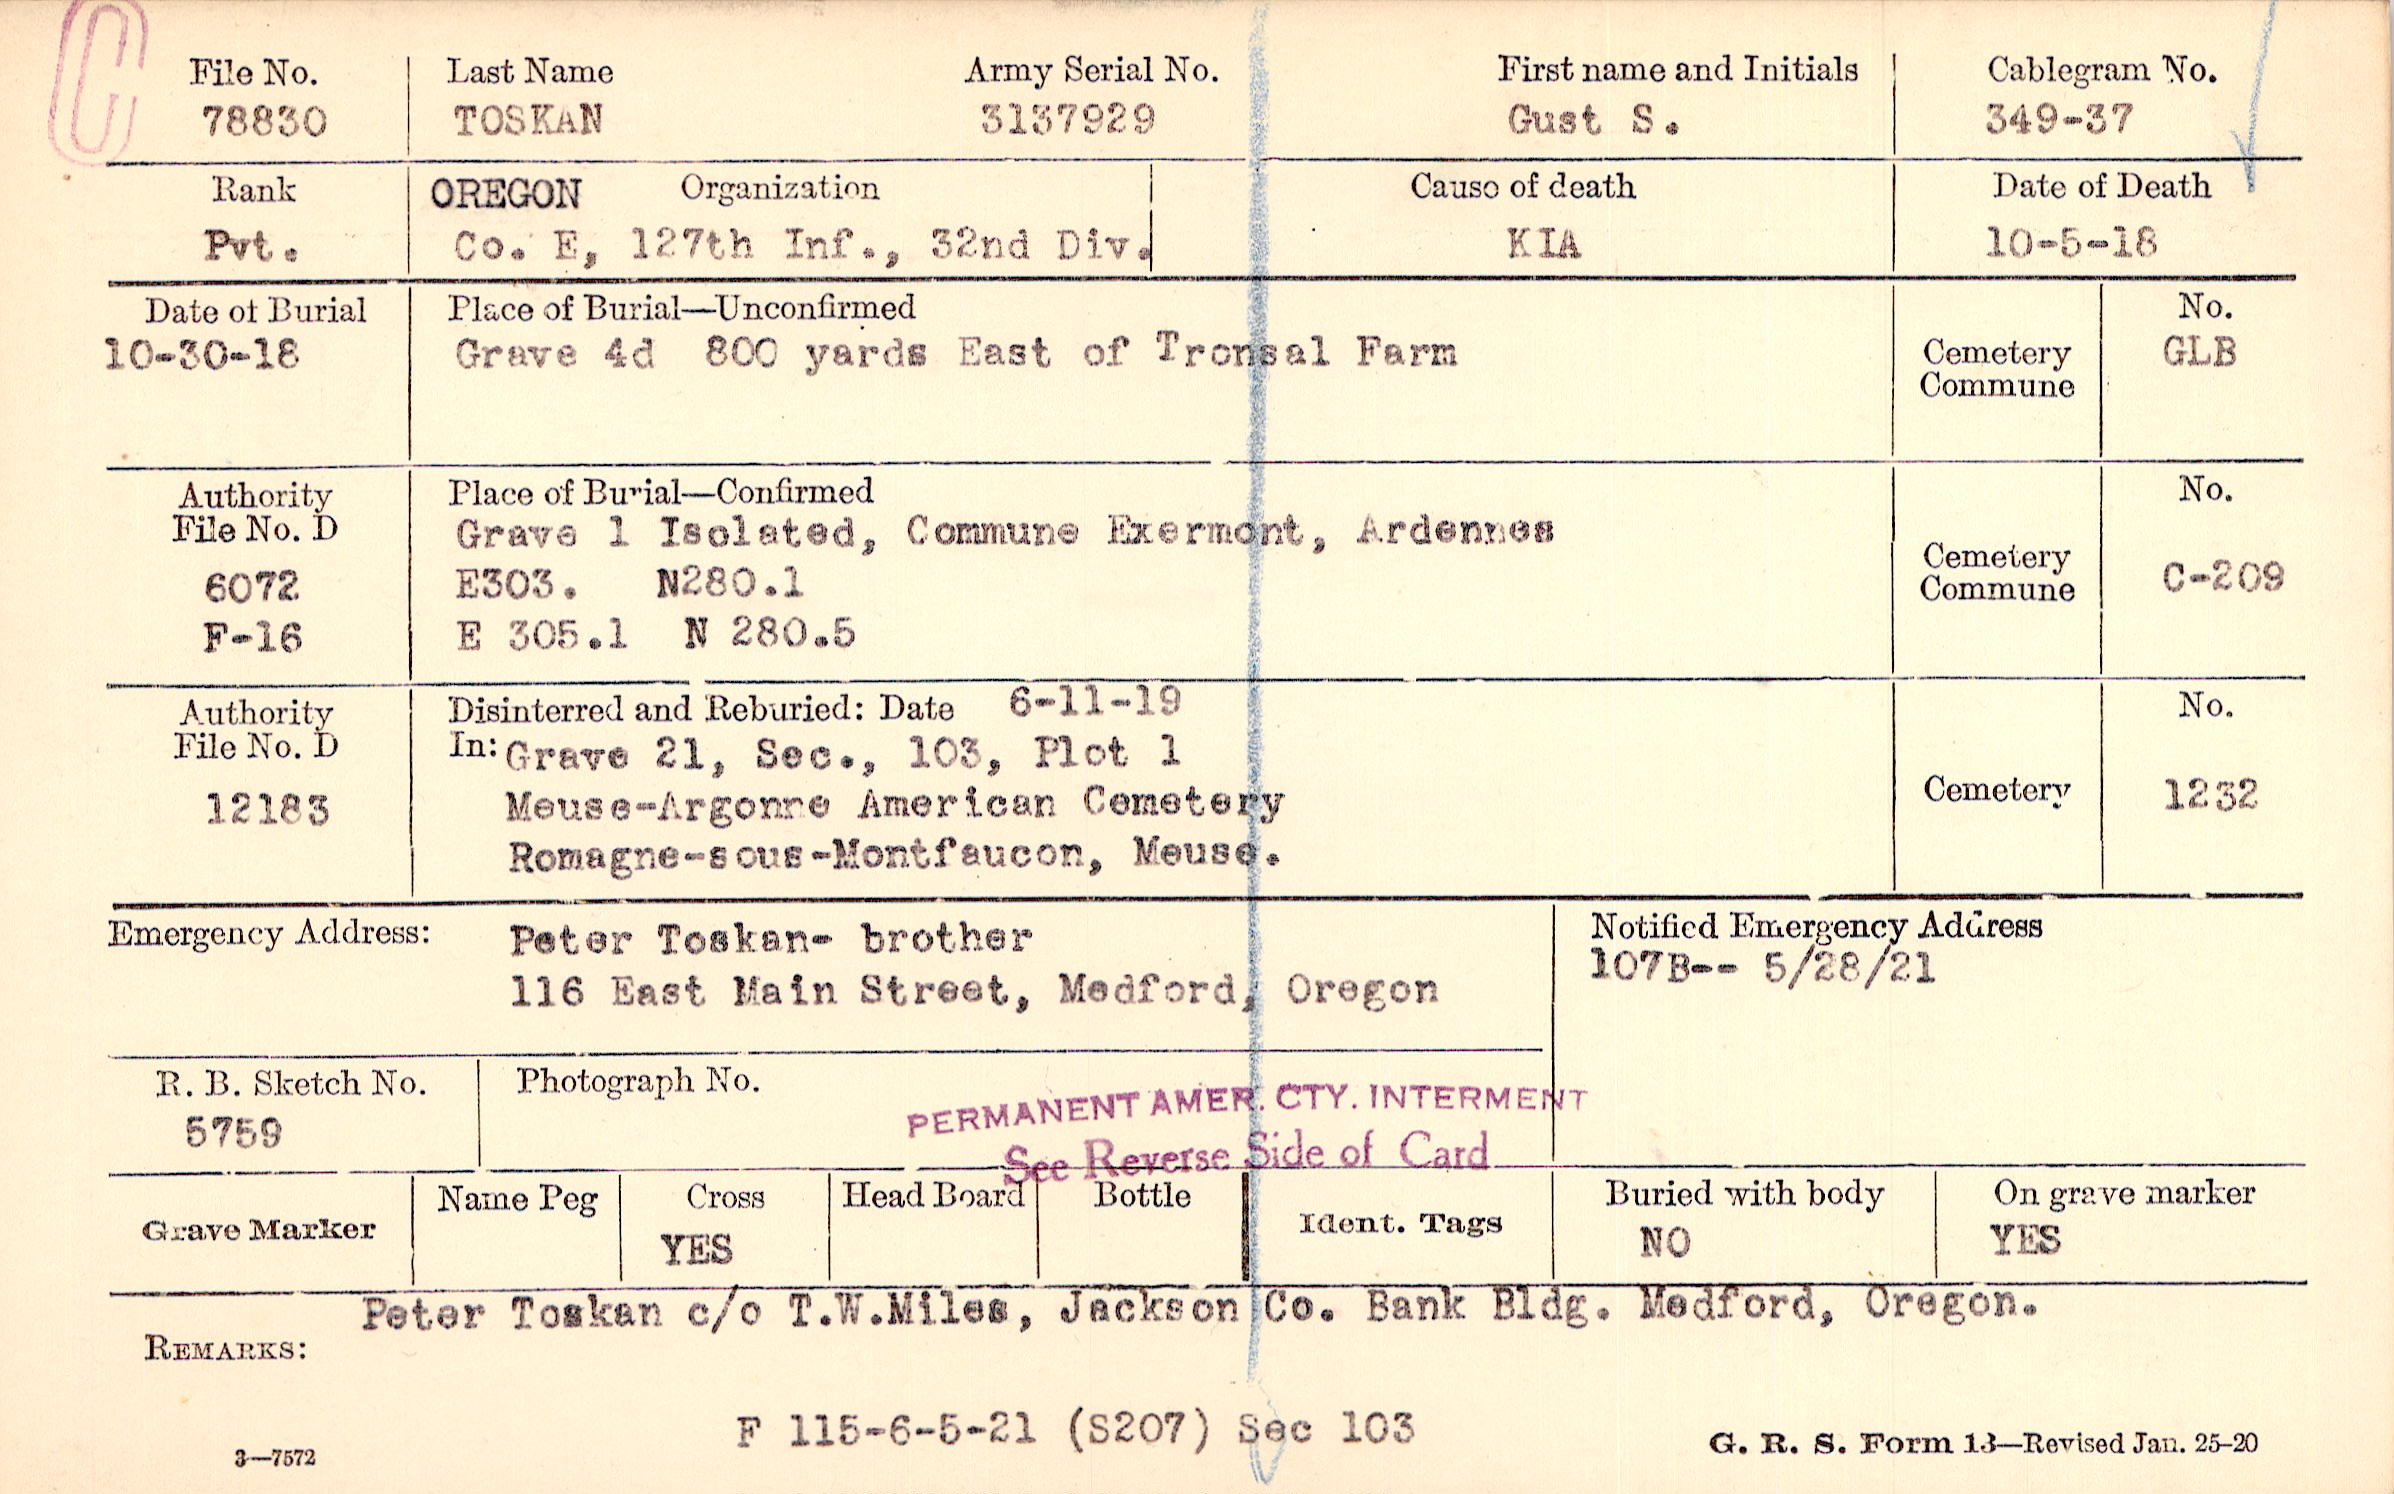 C
File No. Last Name Army Serial No. First name and Initials Cablegram No.
78830 TOSKAN 3137929 Gust S. 349-37
Rank OREGON Organization Cause of death Date of Death
Pvt. Co. E, 127th Inf., 32nd Div. KIA 10-5-18
Date of Burial Place of Burial—Unconfirmed No.
10-30-18 Grave 4d 800 yards East of Tronsal Farm Cemetery GLB
Commune
Authority Place of Burial—Confirmed No.
File No. D Grave 1 Isolated, Commune Exermont, Ardennes
6072 E303. N280.1 Cemetery Commune C-209
F-16 E 305.1 N 280.5
Authority Disinterred and Reburied: Date 6-11-19 No.
File No. D In: Grave 21, Sec., 103, Plot 1
12183 Meuse-Argonne American Cemetery Cemetery 1232
Romagne-sous-Montfaucon, Meuse.
Emergency Address: Peter Toskan- brother Notified Emergency Address
116 East Main Street, Medford, Oregon 107B-- 5/28/21
R. B. Sketch No. Photograph No.
5759
PERMANENT AMER. CTY. INTERMENT
See Reverse Side of Card
Grave Marker Name Peg Cross Head Board Bottle Ident. Tags Buried with body On grave marker
YES NO YES
Peter Toskan c/o T.W.Miles, Jackson Co. Bank Bldg. Medford, Oregon.
REMARKS:
F 115-6-5-21 (S207) Sec 103
3—7572 G. R. S. Form 13—Revised Jan. 25-20